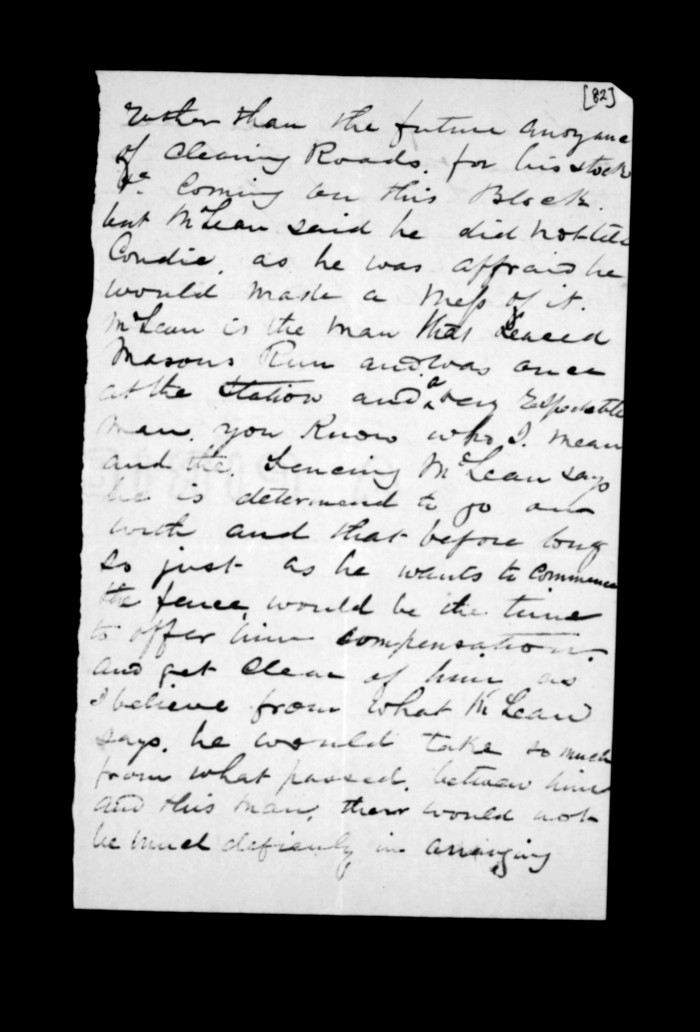 [82]
rather than the future anoyance
of Clearing Roads, for his stock
&c. Coming on this Block.
but McLean said he did not tell
Condie, as he was affraid he
would made a Mess of it.
McLean is the man that leased
Masons Run and was once
at the Station and a very respectable
man. you Know who I mean
and the fencing McLean says
he is determend to go on
with and that before long
so just as he wants to Commence
the fence, would be the time
to offer him compensation.
and get Clear of him as
I believe from what McLean
says, he would take so much
from what passed, between him
and this man, ther would not
be much in arranging